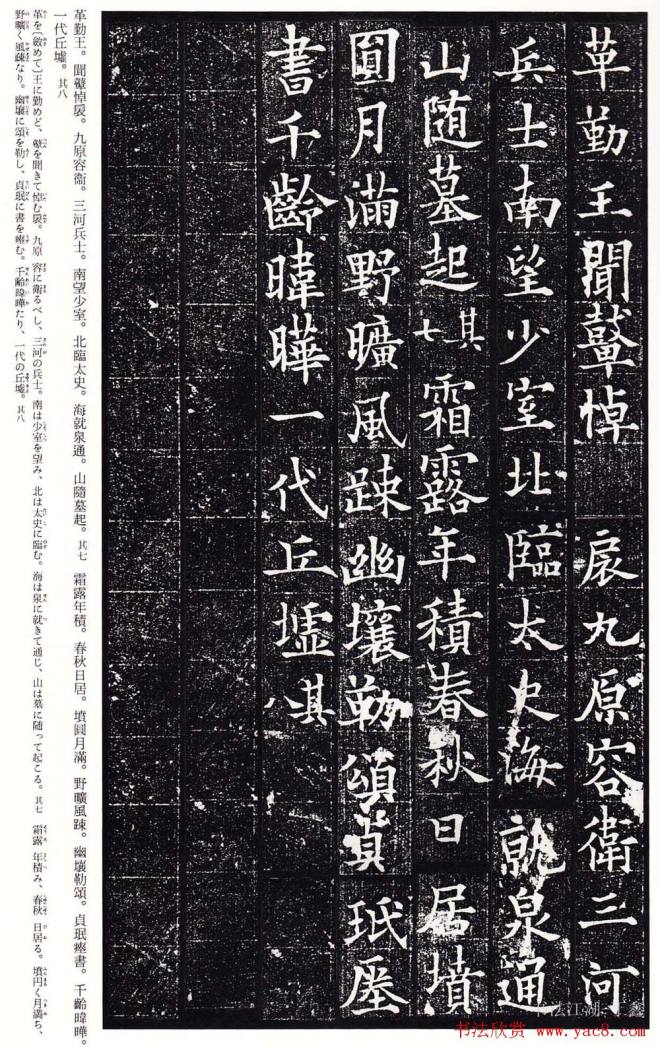 革勤王聞鼙悼扆九原容衛三河
兵士南望少室北臨太史海就泉通
山隨墓起其七霜露年積春秋日居墳
圓月滿野曠風踈幽壤勒頌貞珉瘞
書千齡暐曄一代丘墟其八
革勤王。聞鼙悼扆。九原容衞。三河兵士。南望少室。北臨太史。海就泉通。山隨墓起。其七 霜露年積。春秋日居。墳圓月滿。野曠風踈。幽壤勒頌。貞珉瘞書。千齡暐曄。
一代丘墟。其八
革を〔斂めて〕王に勤めど、鼙を聞きて悼む扆。九原 容に衛るべし、三河の兵士。南は少室を望み、北は太史に臨む。海は泉に就きて通じ、山は墓に随って起こる。其七 霜露 年積み、春秋 日居る。墳円く月満ち、
野曠く風踈なり。幽壤に頌を勒し、貞珉に書を瘞む。千齡暐曄たり、一代の丘墟。其八
书法欣赏 www.yac8.com